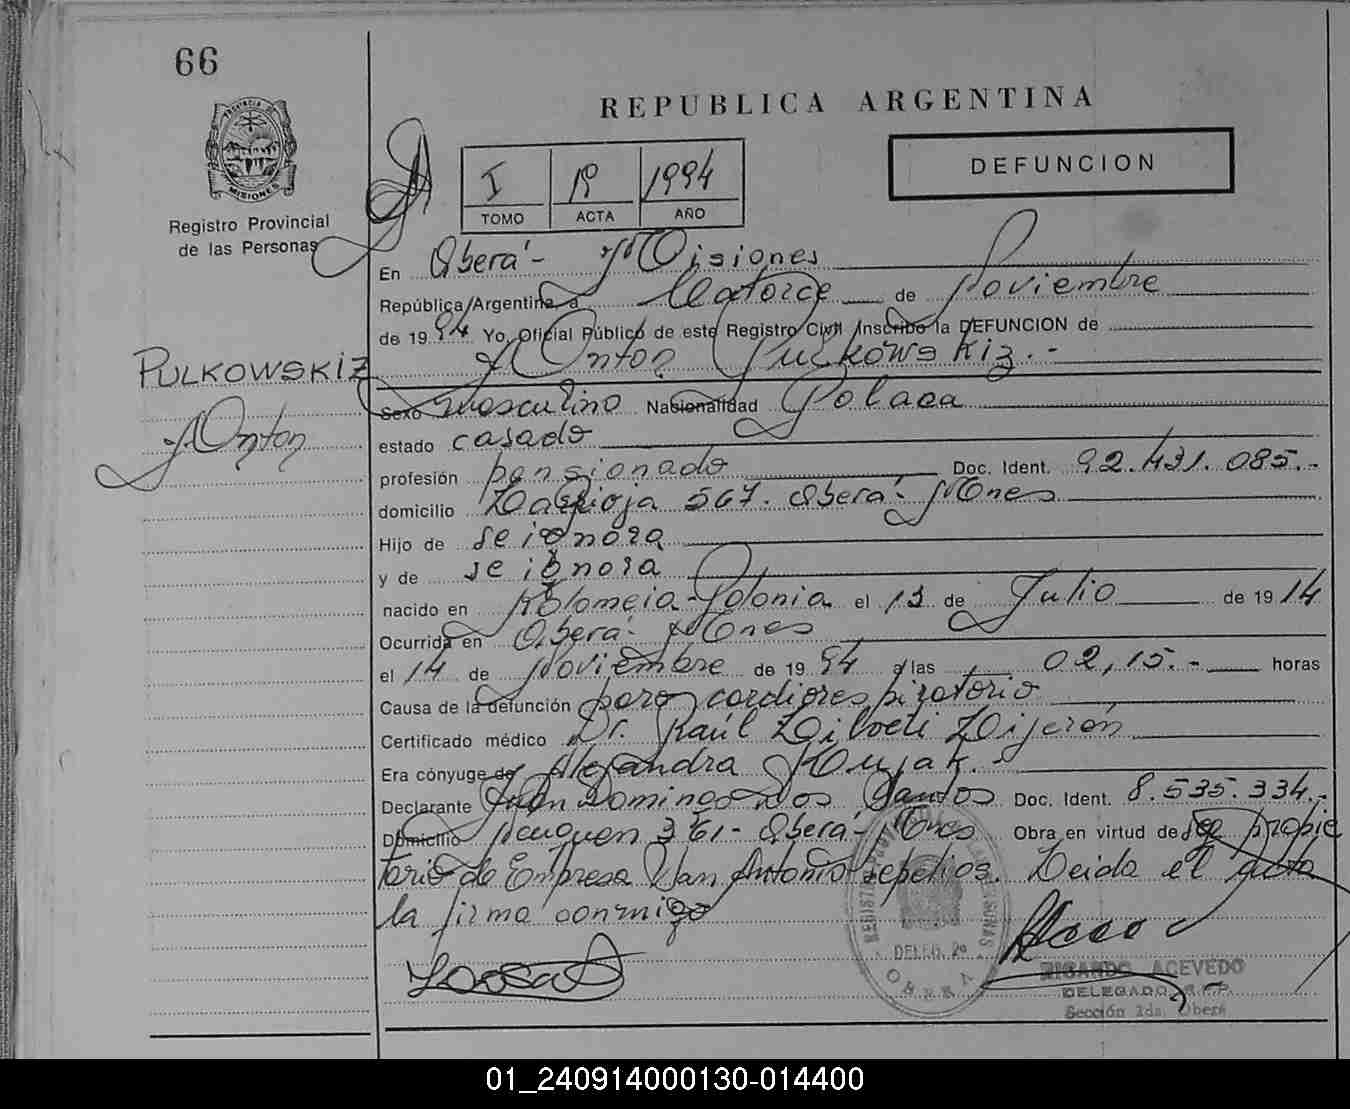 66
REPUBLICA ARGENTINA
PROVINCIA DE
MISIONES
Registro Provincial
de las Personas
I 19 1994
TOMO ACTA AÑO
DEFUNCION
En Oberá - Misiones
República Argentina, a Catorce de Noviembre
de 1994 Yo, Oficial Público de este Registro Civil Inscribo la DEFUNCION de
Anton Pulkowskiz.-
PULKOWSKIZ
Anton
Sexo masculino Nacionalidad Polaca
estado casado
profesión pensionado Doc. Ident. 92.431.085.-
domicilio La Rioja 567. Oberá- Mnes
Hijo de se ignora
y de se ignora
nacido en Kolomeia-Polonia el 13 de Julio de 1914
Ocurrida en Oberá- Mnes
el 14 de Noviembre de 1994 a las 02,15.- horas
Causa de la defunción paro cardiorespiratorio
Certificado médico Dr. Raúl
Era cónyuge de Alejandra
Declarante Juan Domingo Dos Santos Doc. Ident. 8.535.334.-
Domicilio Neuquen 361- Oberá- Mnes Obra en virtud de ser propie
tario de Empresa San Antonio Sepelios. Leida el Acta
la firma conmigo
DELEG. 2ª
OBERA
RICARDO ACEVEDO
DELEGADO R.P.P.
Sección 2da. Oberá
01_240914000130-014400